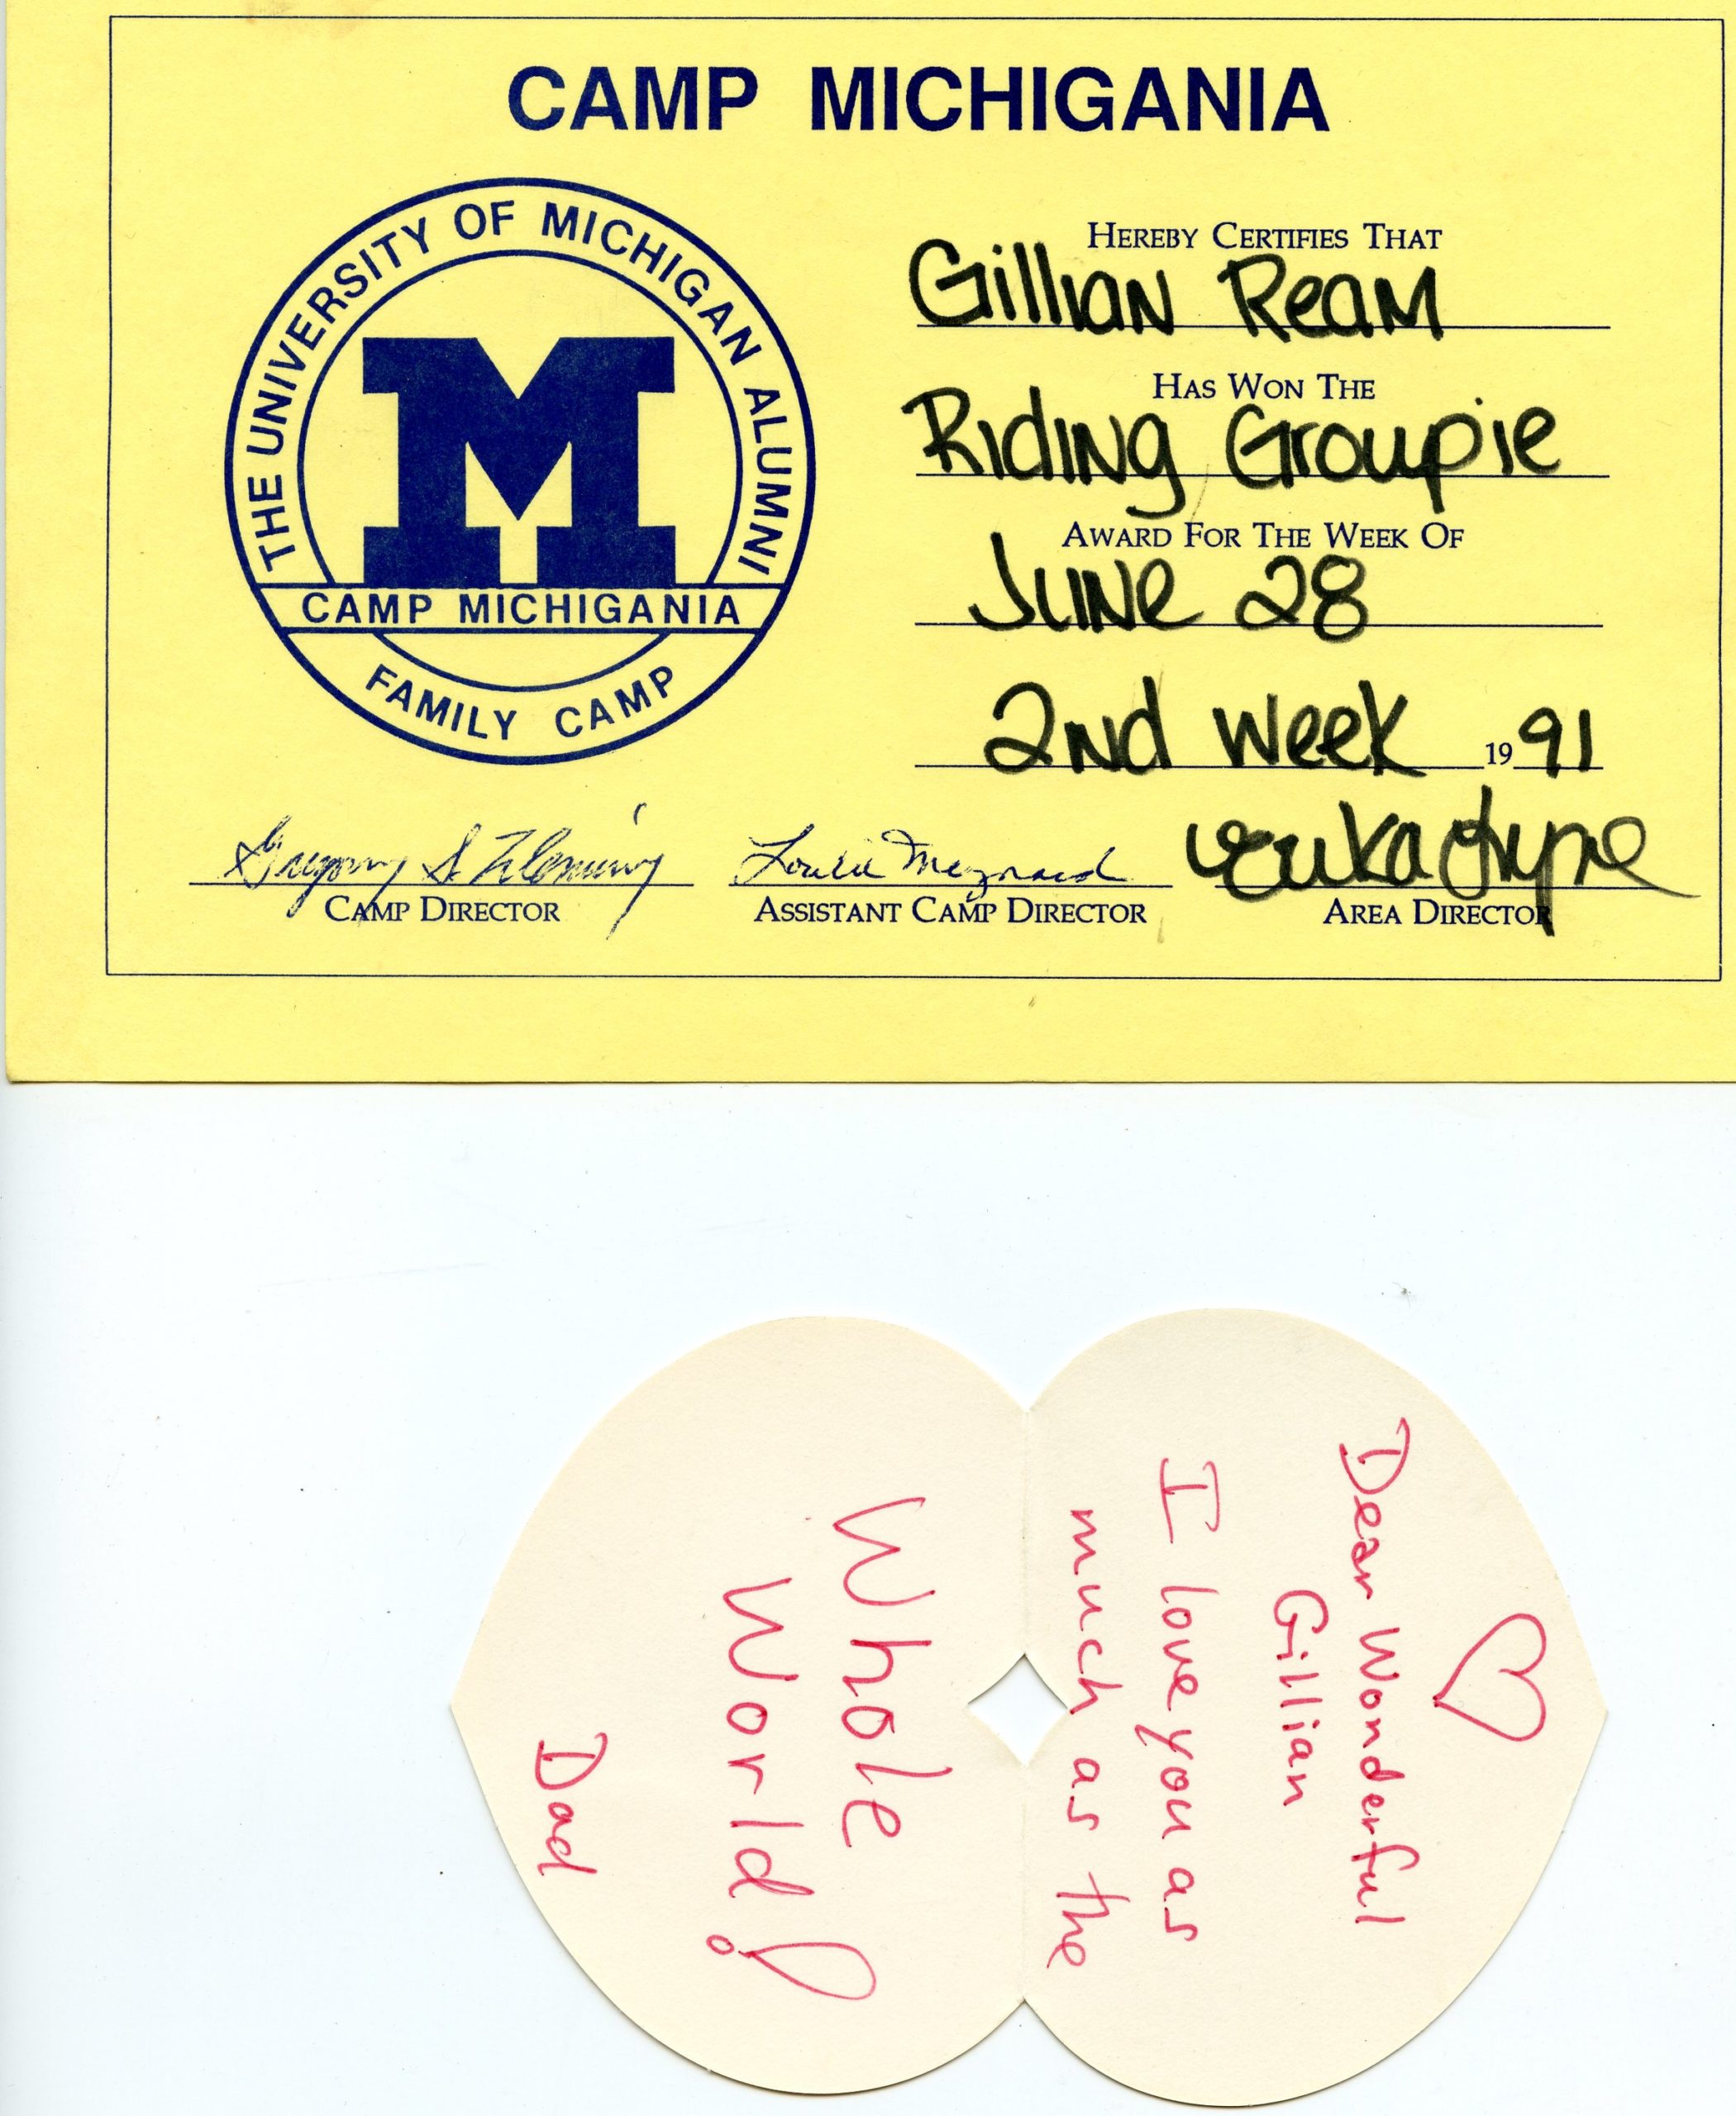 CAMP MICHIGANIA
THE UNIVERSITY OF MICHIGAN ALUMNI
M
CAMP MICHIGANIA
FAMILY CAMP
HEREBY CERTIFIES THAT
Gillian Ream
HAS WON THE
Riding Groupie
AWARD FOR THE WEEK OF
June 28
2nd week 1991
Gregory S. Fleming
CAMP DIRECTOR
ASSISTANT CAMP DIRECTOR
AREA DIRECTOR
Dear Wonderful
Gillian
I love you as
much as the
Whole
World!
Dad